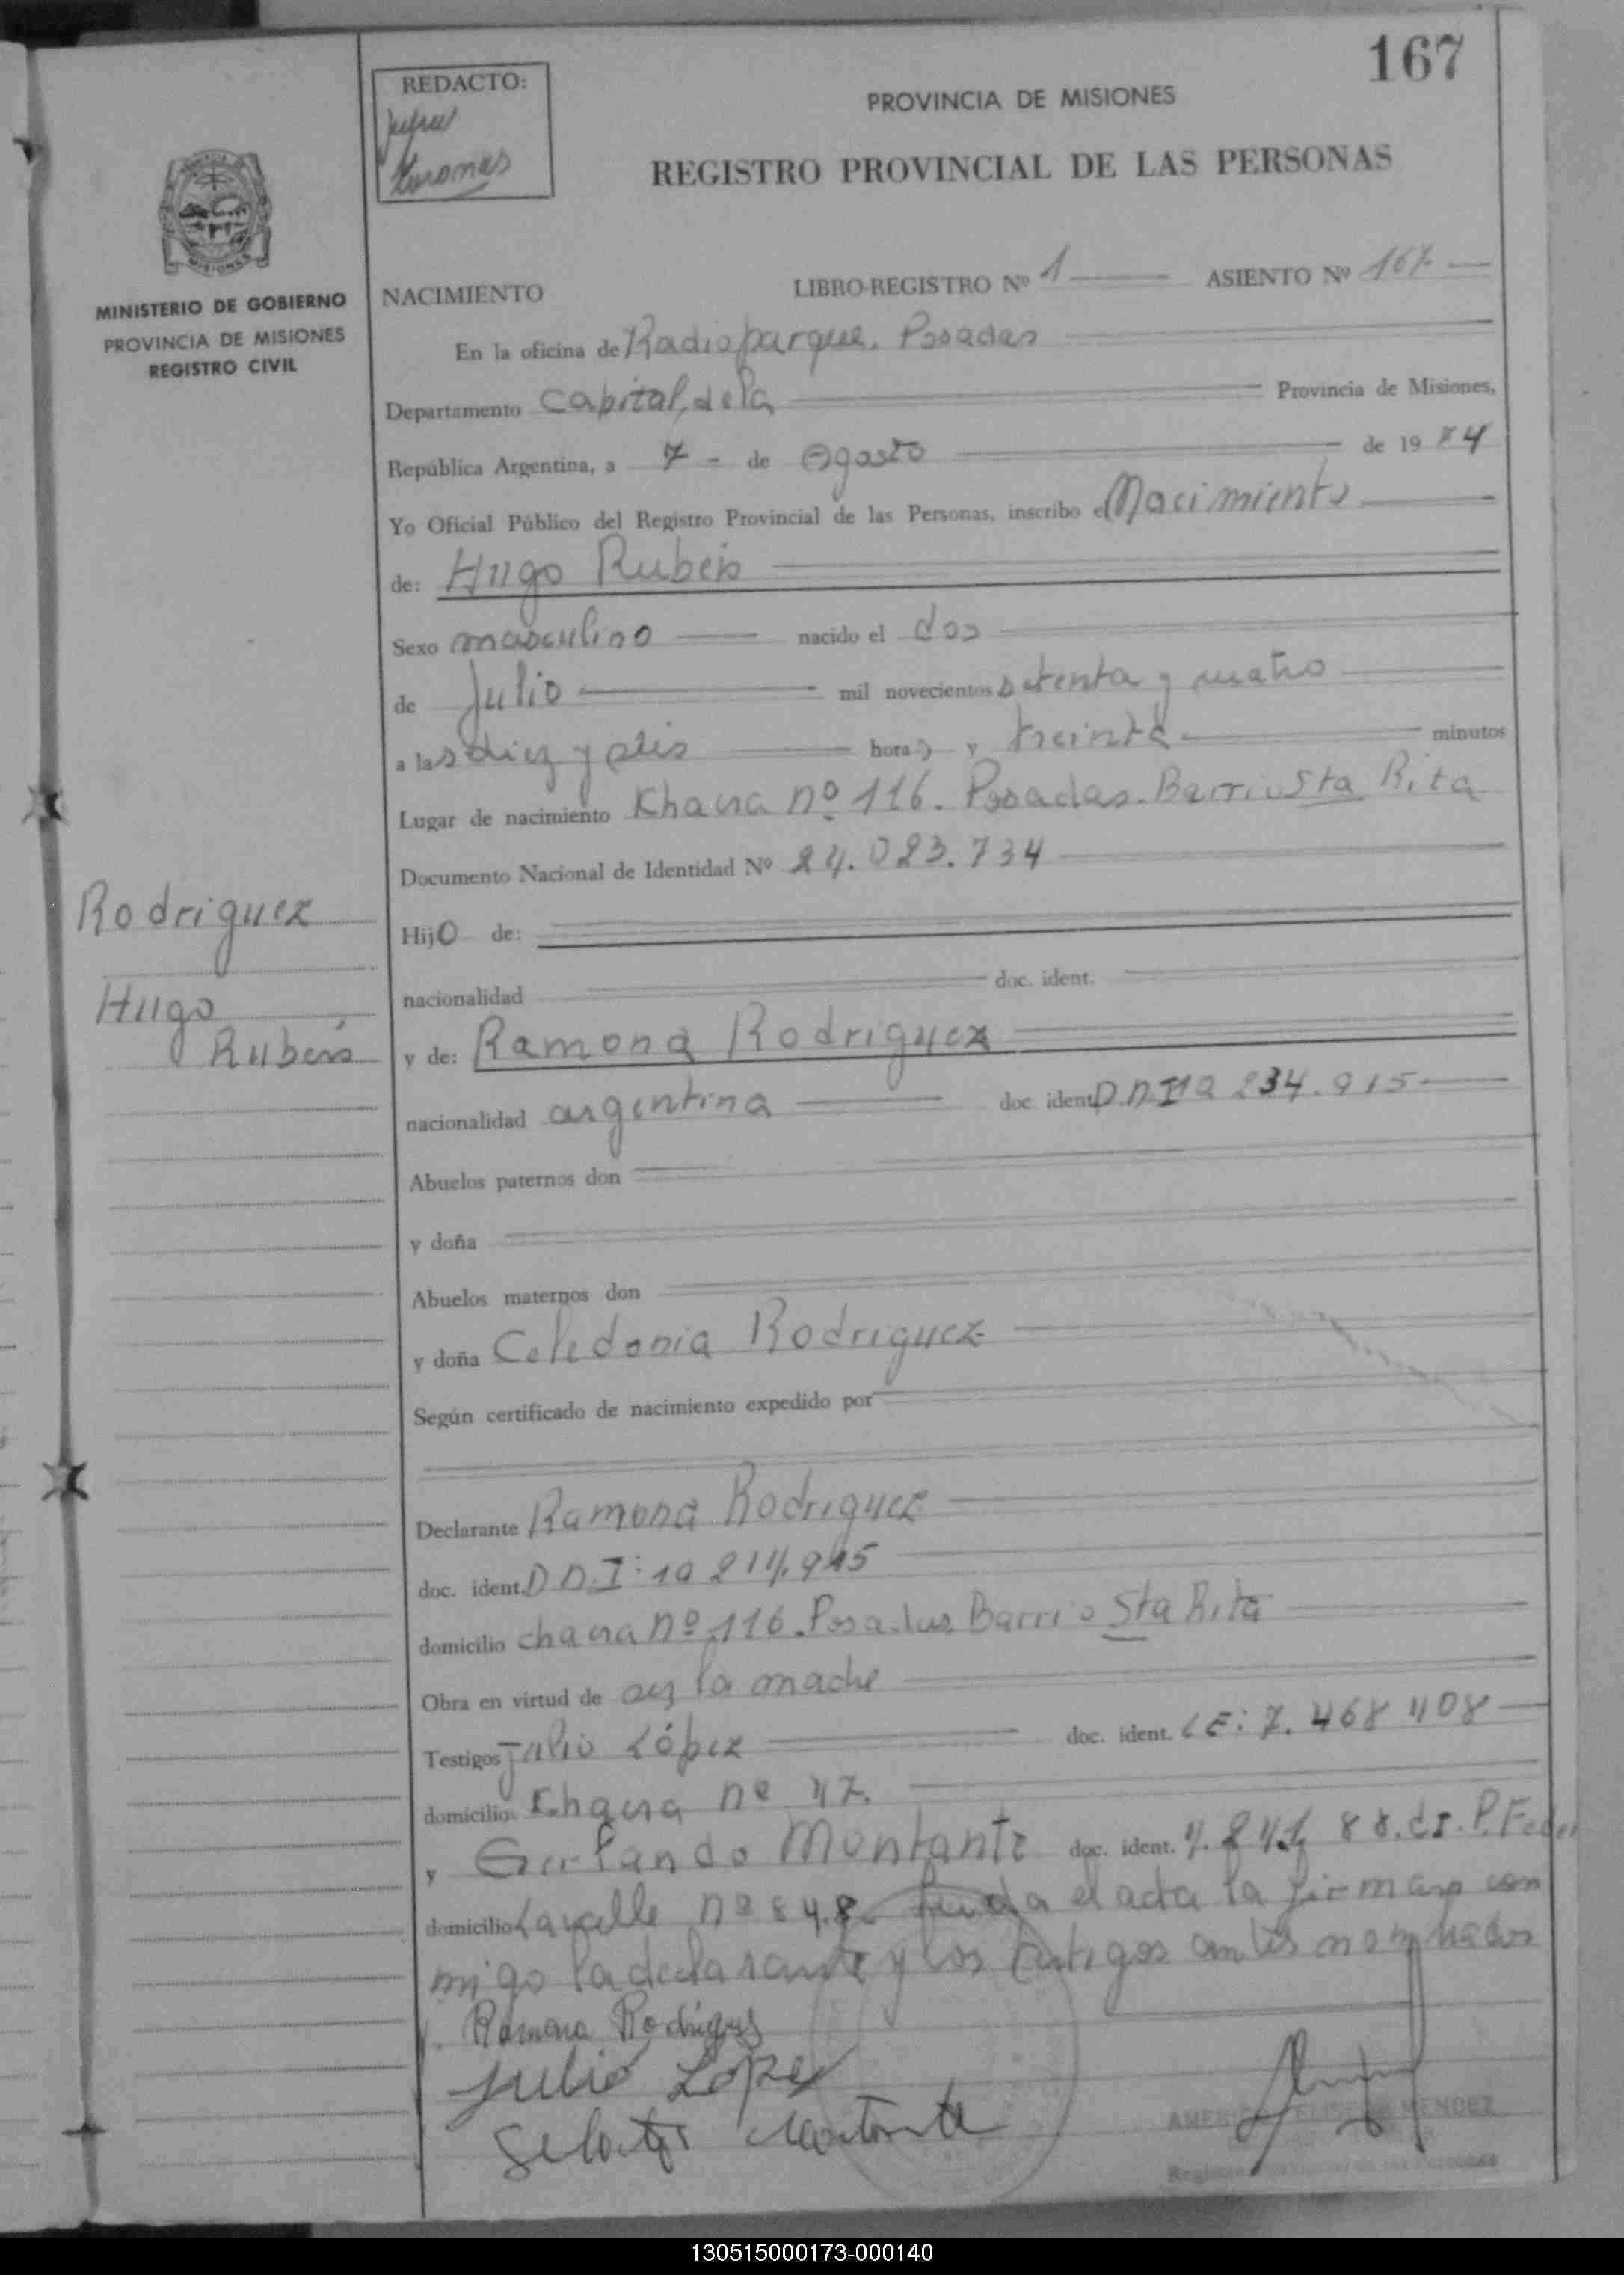 167
REDACTO:
PROVINCIA DE MISIONES
REGISTRO PROVINCIAL DE LAS PERSONAS
MINISTERIO DE GOBIERNO
PROVINCIA DE MISIONES
REGISTRO CIVIL
NACIMIENTO LIBRO-REGISTRO Nº 1 ASIENTO Nº 167
En la oficina de Radioparque. Posadas
Departamento Capital, de la Provincia de Misiones,
República Argentina, a 7 - de Agosto de 19 74
Yo Oficial Público del Registro Provincial de las Personas, inscribo el Nacimiento
de: Hugo Rubén
Sexo masculino nacido el dos
de Julio mil novecientos setenta y cuatro
a las diez y seis horas y treinta minutos
Lugar de nacimiento Nº 116. Posadas. Barrio Sta Rita
Documento Nacional de Identidad Nº 24.023.734
Rodriguez
Hijo de:
nacionalidad doc. ident.
Hugo
Rubén
y de: Ramona Rodriguez
nacionalidad argentina doc. ident. D.N.I 234.915
Abuelos paternos don
y doña
Abuelos maternos don
y doña Celedonia Rodriguez
Según certificado de nacimiento expedido por
Declarante Ramona Rodriguez
doc. ident. D.N.I:
domicilio chacra Nº 116. Posadas Barrio Sta Rita
Obra en virtud de ser la madre
Testigos Julio López doc. ident. L E: 7. 468 408
domicilio Nº 47.
y Montante doc. ident. P. Feder
domicilio Lavalle nº 848. el acta la firman con
migo la declarante y los testigos antes nombrados
Ramona Rodrigues
Julio Lopez
Montante
MENDEZ
130515000173-000140